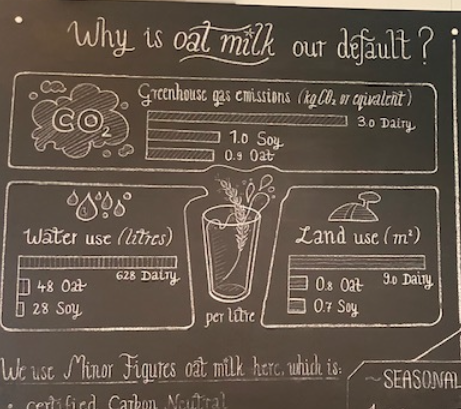 Why is oat milk our default?
CO₂
Greenhouse gas emissions (kg CO₂ or eqivalent)
3.0 Dairy
1.0 Soy
0.9 Oat
Water use (litres)
628 Dairy
48 Oat
28 Soy
per litre
Land use (m²)
9.0 Dairy
0.8 Oat
0.7 Soy
We use Minor Figures oat milk here, which is:
~SEASONAL
certified Carbon Neutral